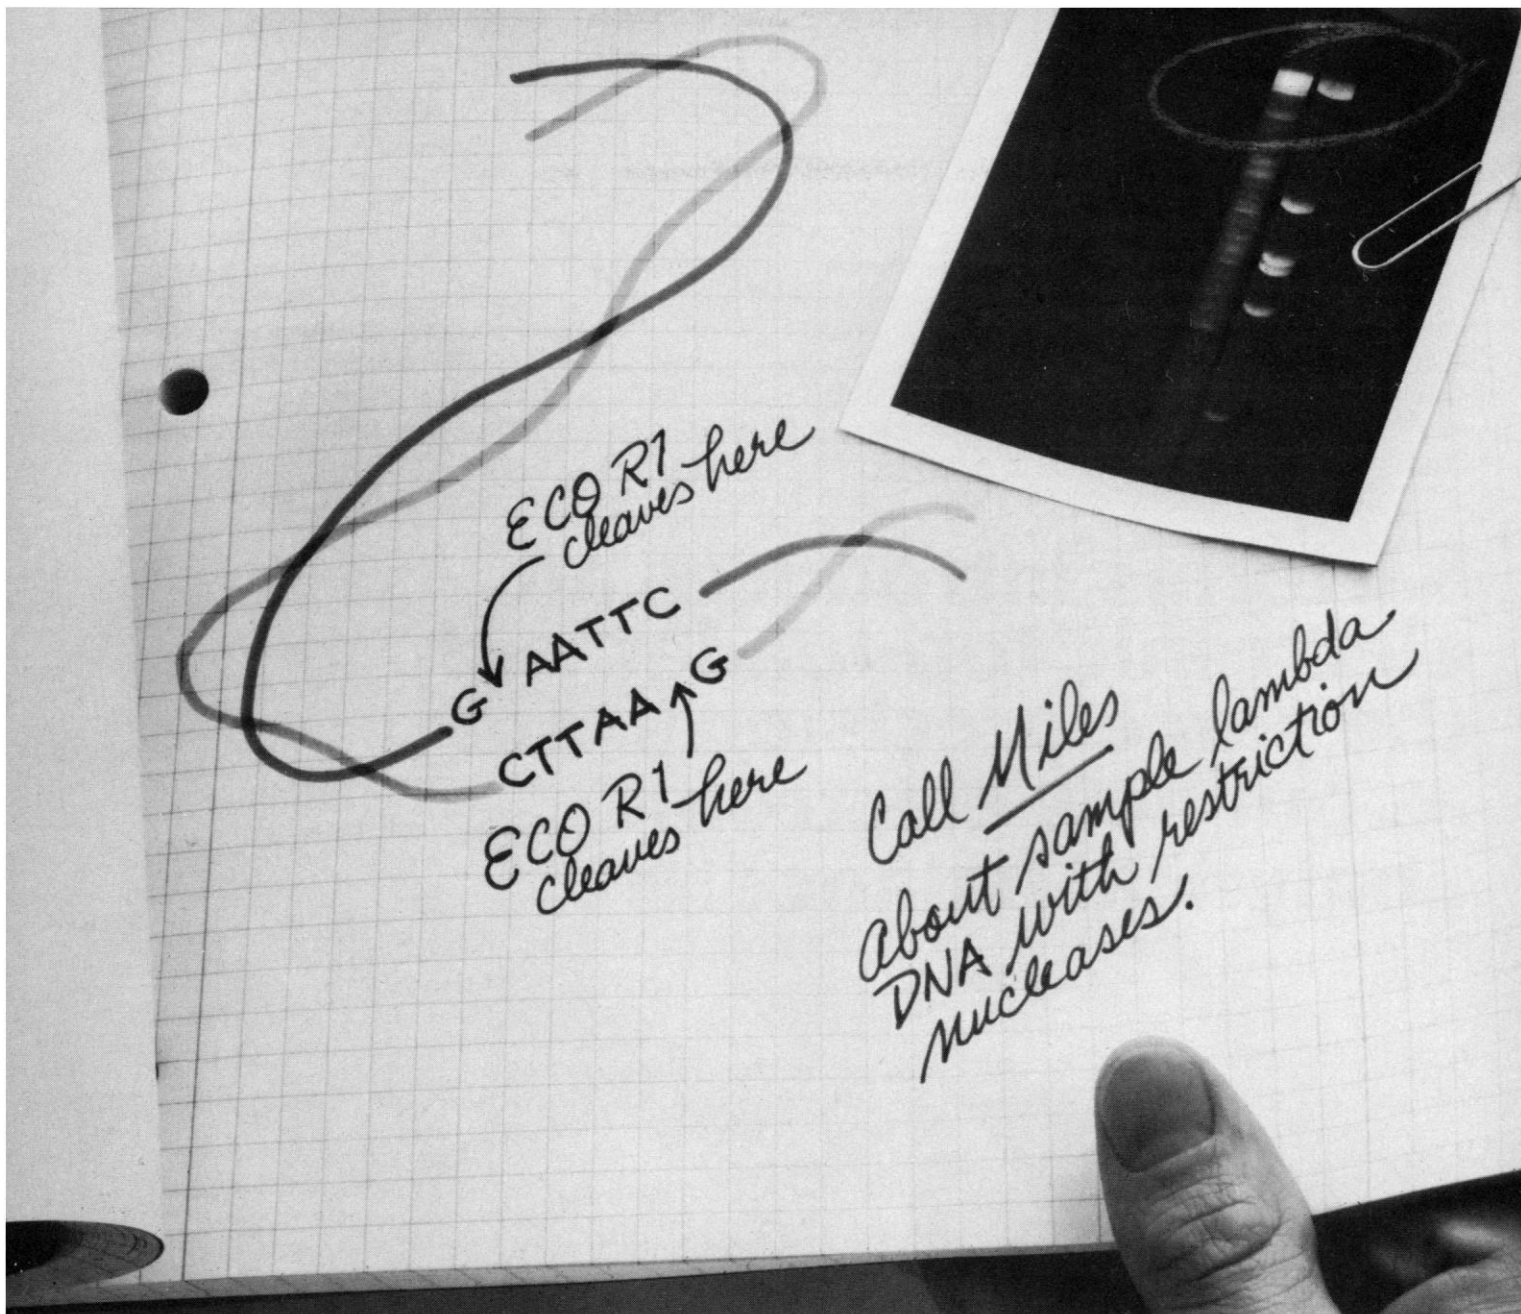 ECO R1
cleaves here
G AATTC
CTTAA G
ECO R1
cleaves here
Call Miles
about sample lambda
DNA with restriction
nucleases.